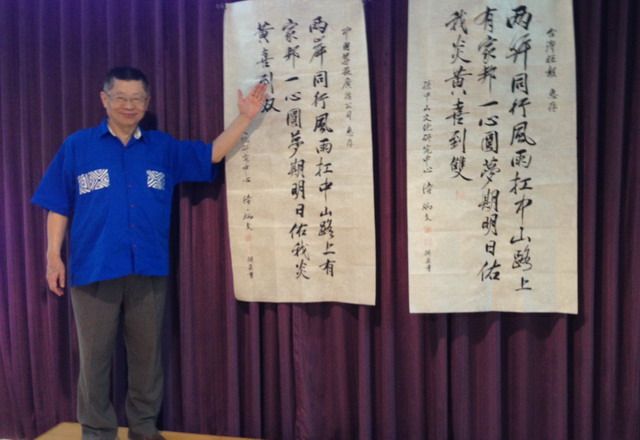 台灣旺報 惠存
两岸同行風雨扛中山路上
有家邦一心圓夢期明日佑
我炎黃喜到雙
孫中山文化研究中心 陸炳文
中國華藝廣播公司 惠存
两岸同行風雨扛中山路上有
家邦一心圓夢期明日佑我炎
黃喜到双
究中心 陸炳文